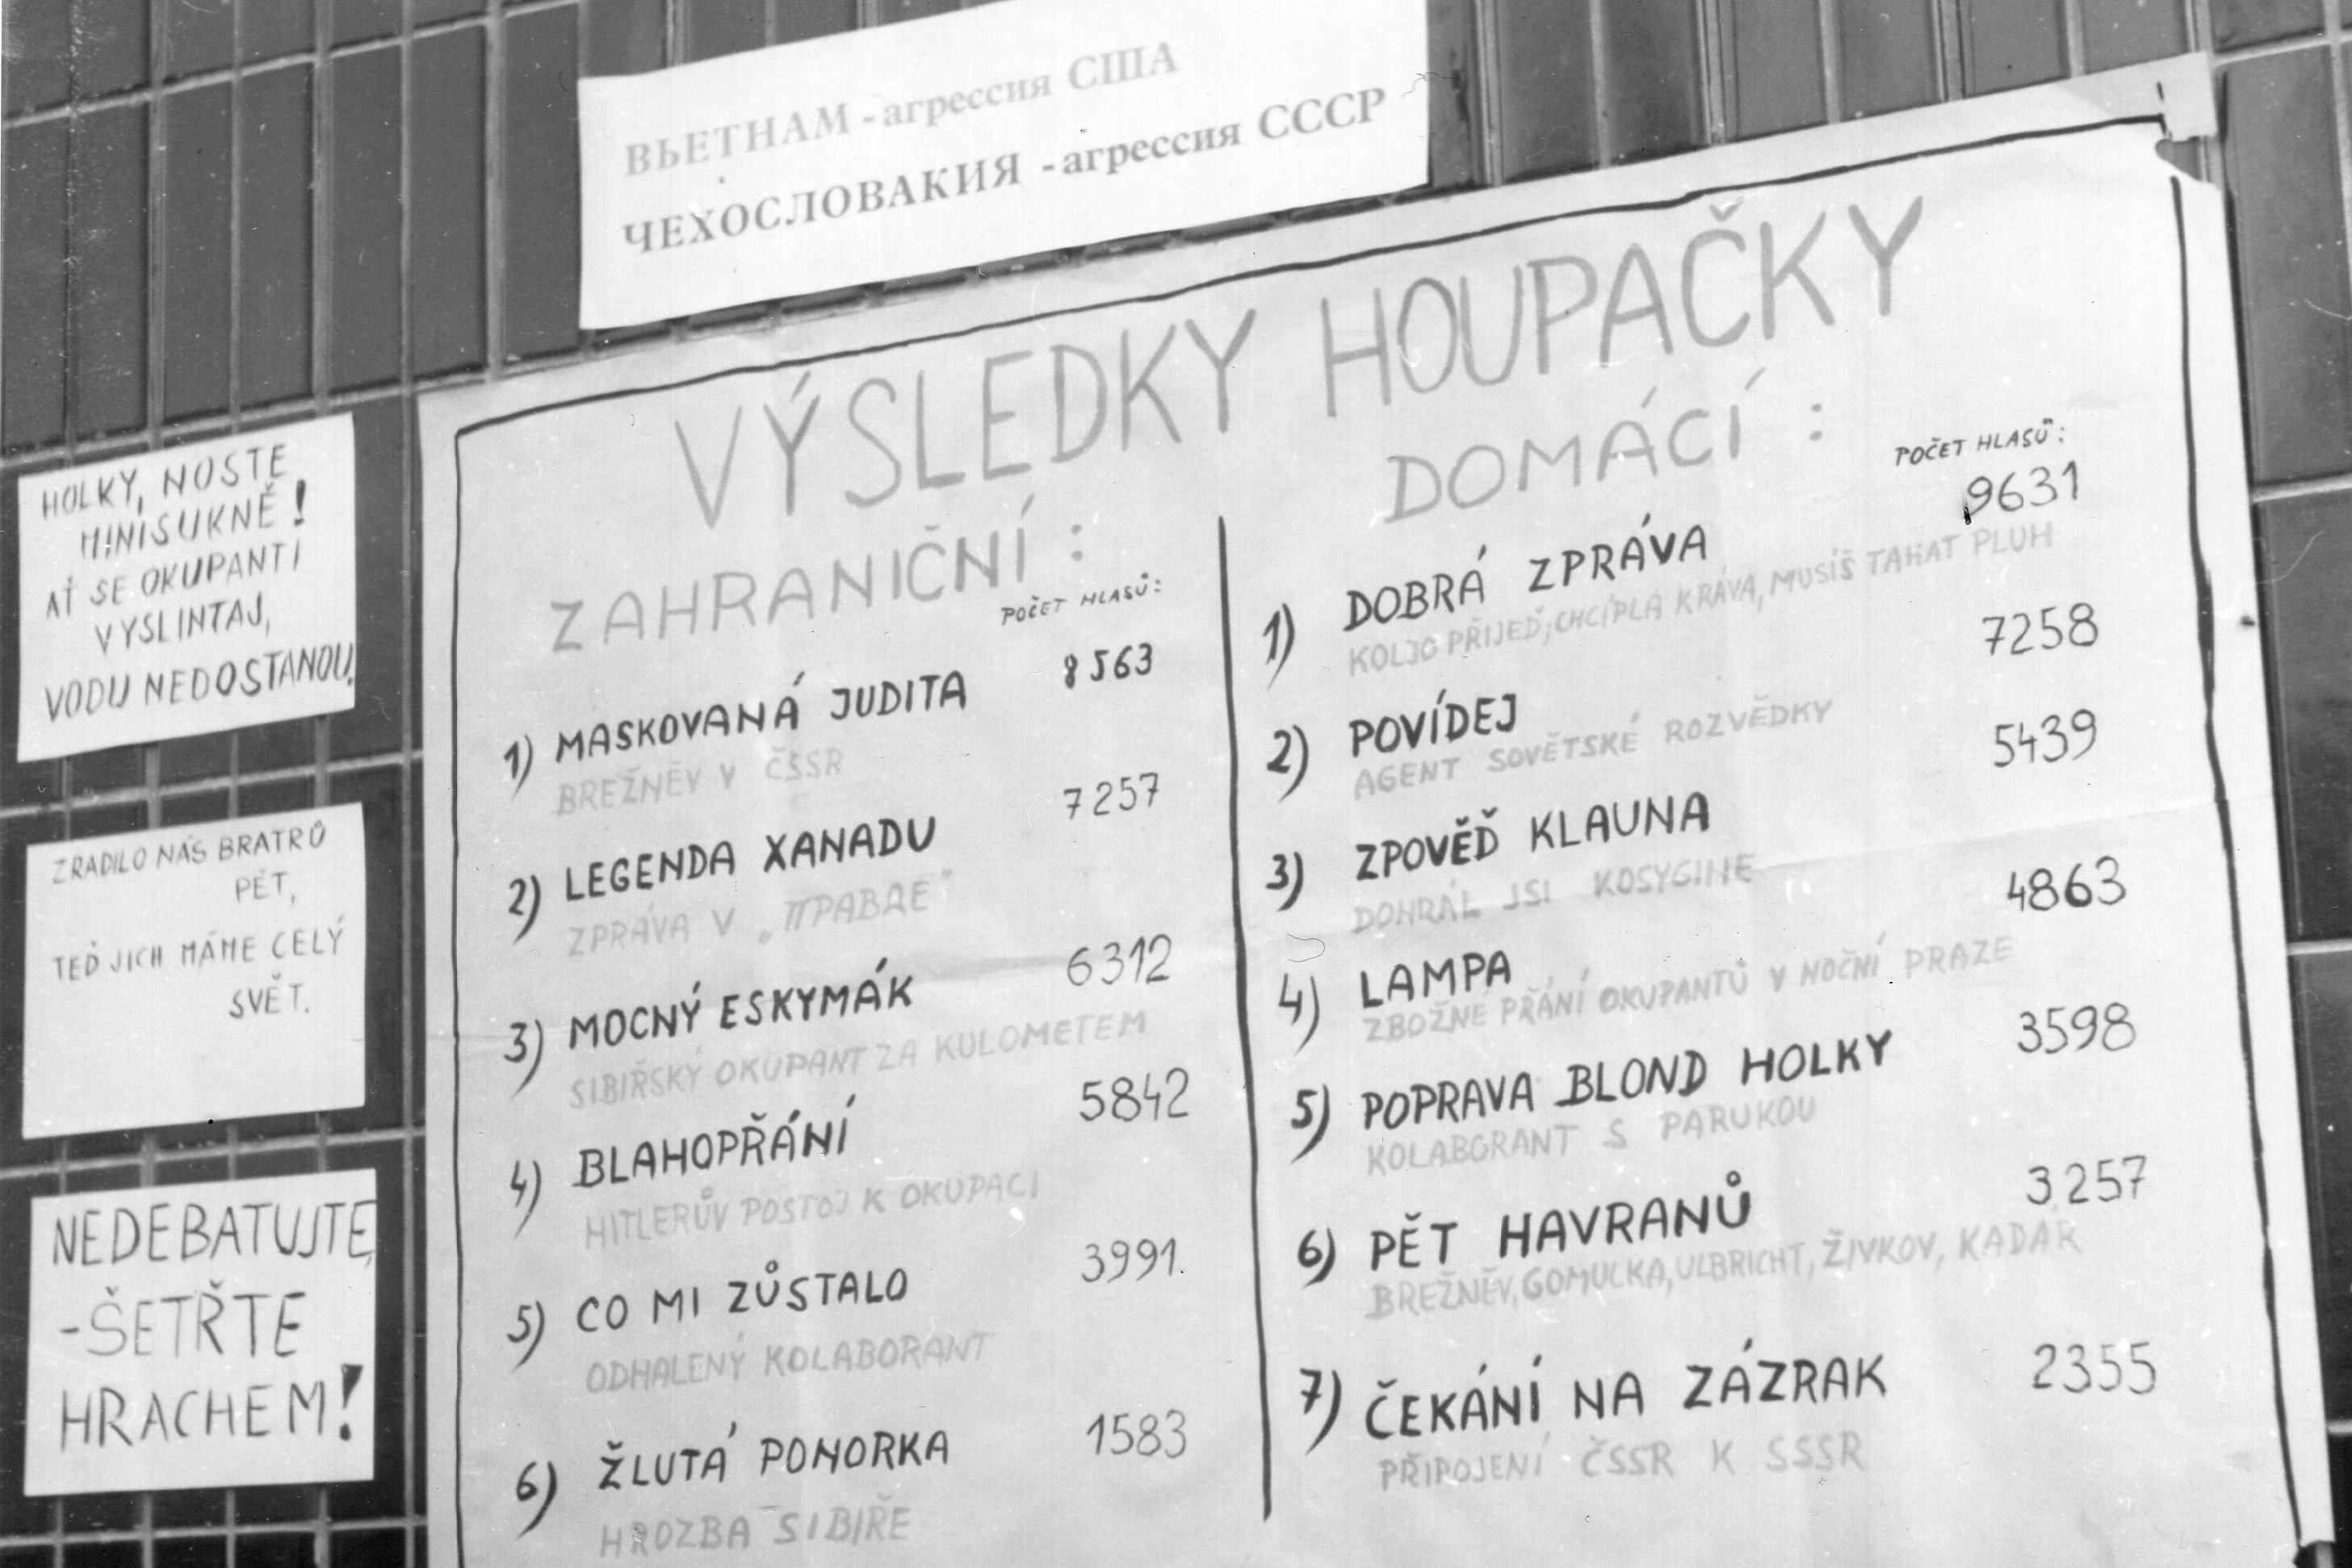 ВЬЕТНАМ - агрессия США
ЧЕХОСЛОВАКИЯ - агрессия СССР
HOLKY, NOSTE
MINISUKNĚ!
AŤ SE OKUPANTI
VYSLINTAJ,
VODU NEDOSTANOU.
ZRADILO NÁS BRATRŮ
PĚT,
TEĎ JICH MÁME CELÝ
SVĚT.
NEDEBATUJTE,
-ŠETŘTE
HRACHEM!
VÝSLEDKY HOUPAČKY
ZAHRANIČNÍ:
POČET HLASŮ:
1) MASKOVANÁ JUDITA 8563
BREŽNĚV V ČSSR
2) LEGENDA XANADU 7257
ZPRÁVA V „ПРАВДЕ“
3) MOCNÝ ESKYMÁK 6312
SIBIŘSKÝ OKUPANT ZA KULOMETEM
4) BLAHOPŘÁNÍ 5842
HITLERŮV POSTOJ K OKUPACI
5) CO MI ZŮSTALO 3991.
ODHALENÝ KOLABORANT
6) ŽLUTÁ PONORKA 1583
HROZBA SIBIŘE
DOMÁCÍ:
POČET HLASŮ:
1) DOBRÁ ZPRÁVA 9631
KOLJO PŘIJEĎ, CHCÍPLA KRÁVA, MUSÍŠ TAHAT PLUH
2) POVÍDEJ 7258
AGENT SOVĚTSKÉ ROZVĚDKY
3) ZPOVĚĎ KLAUNA 5439
DOHRÁL JSI KOSYGINE
4) LAMPA 4863
ZBOŽNÉ PŘÁNÍ OKUPANTŮ V NOČNÍ PRAZE
5) POPRAVA BLOND HOLKY 3598
KOLABORANT S PARUKOU
6) PĚT HAVRANŮ 3257
BREŽNĚV, GOMULKA, ULBRICHT, ŽIVKOV, KADÁR
7) ČEKÁNÍ NA ZÁZRAK 2355
PŘIPOJENÍ ČSSR K SSSR